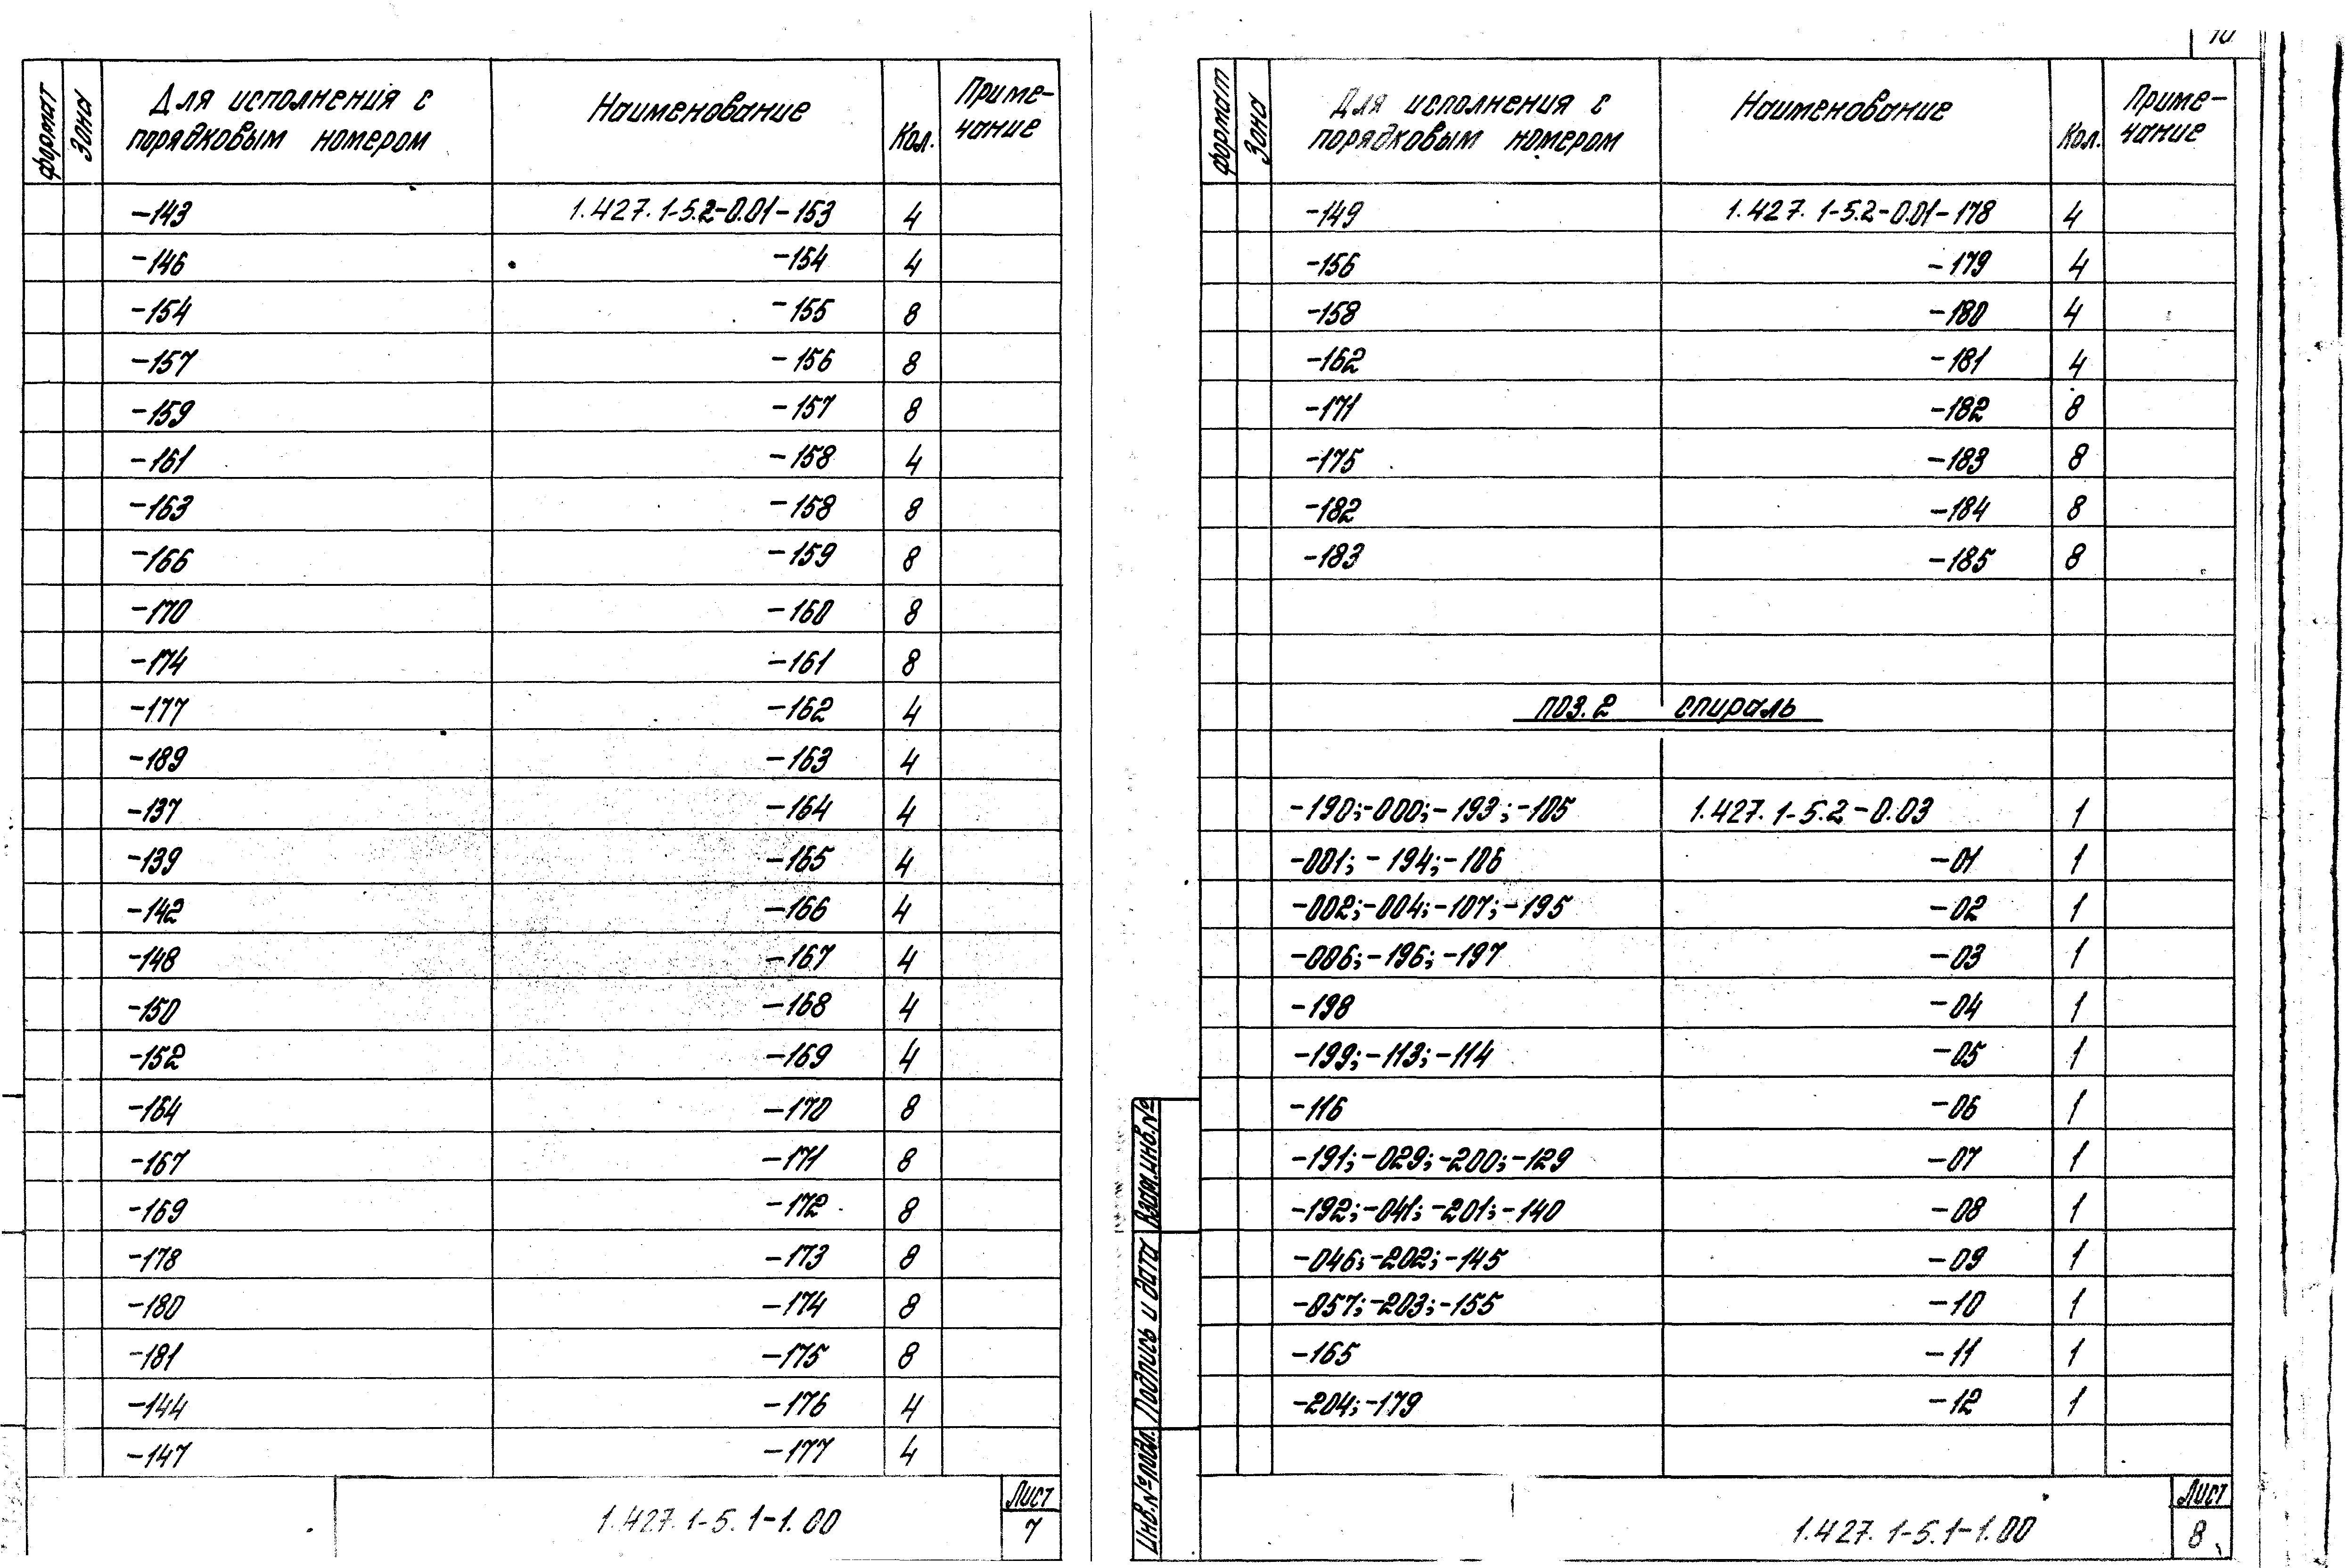 формат Зона Для исполнения с порядковым номером Наименование Кол. Приме-чание
-143 1.427.1-5.2-0.01-153 4
-146 -154 4
-154 -155 8
-157 -156 8
-159 -157 8
-161 -158 4
-163 -158 8
-166 -159 8
-170 -160 8
-174 -161 8
-177 -162 4
-189 -163 4
-137 -164 4
-139 -165 4
-142 -166 4
-148 -167 4
-150 -168 4
-152 -169 4
-164 -170 8
-167 -171 8
-169 -172 8
-178 -173 8
-180 -174 8
-181 -175 8
-144 -176 4
-147 -177 4
1.427.1-5.1-1.00
Лист
7
10
формат Зона Для исполнения с порядковым номером Наименование Кол. Приме-чание
-149 1.427.1-5.2-0.01-178 4
-156 -179 4
-158 -180 4
-162 -181 4
-171 -182 8
-175 -183 8
-182 -184 8
-183 -185 8
поз.2 спираль
-190;-000;-193;-105 1.427.1-5.2-0.03 1
-001;-194;-106 -01 1
-002;-004;-107;-195 -02 1
-006;-196;-197 -03 1
-198 -04 1
-199;-113;-114 -05 1
-116 -06 1
-191;-029;-200;-129 -07 1
-192;-041;-201;-140 -08 1
-046;-202;-145 -09 1
-057;-203;-155 -10 1
-165 -11 1
-204;-179 -12 1
Инв.№подл. Подпись и дата Взам.инв.№
1.427.1-5.1-1.00
Лист
8